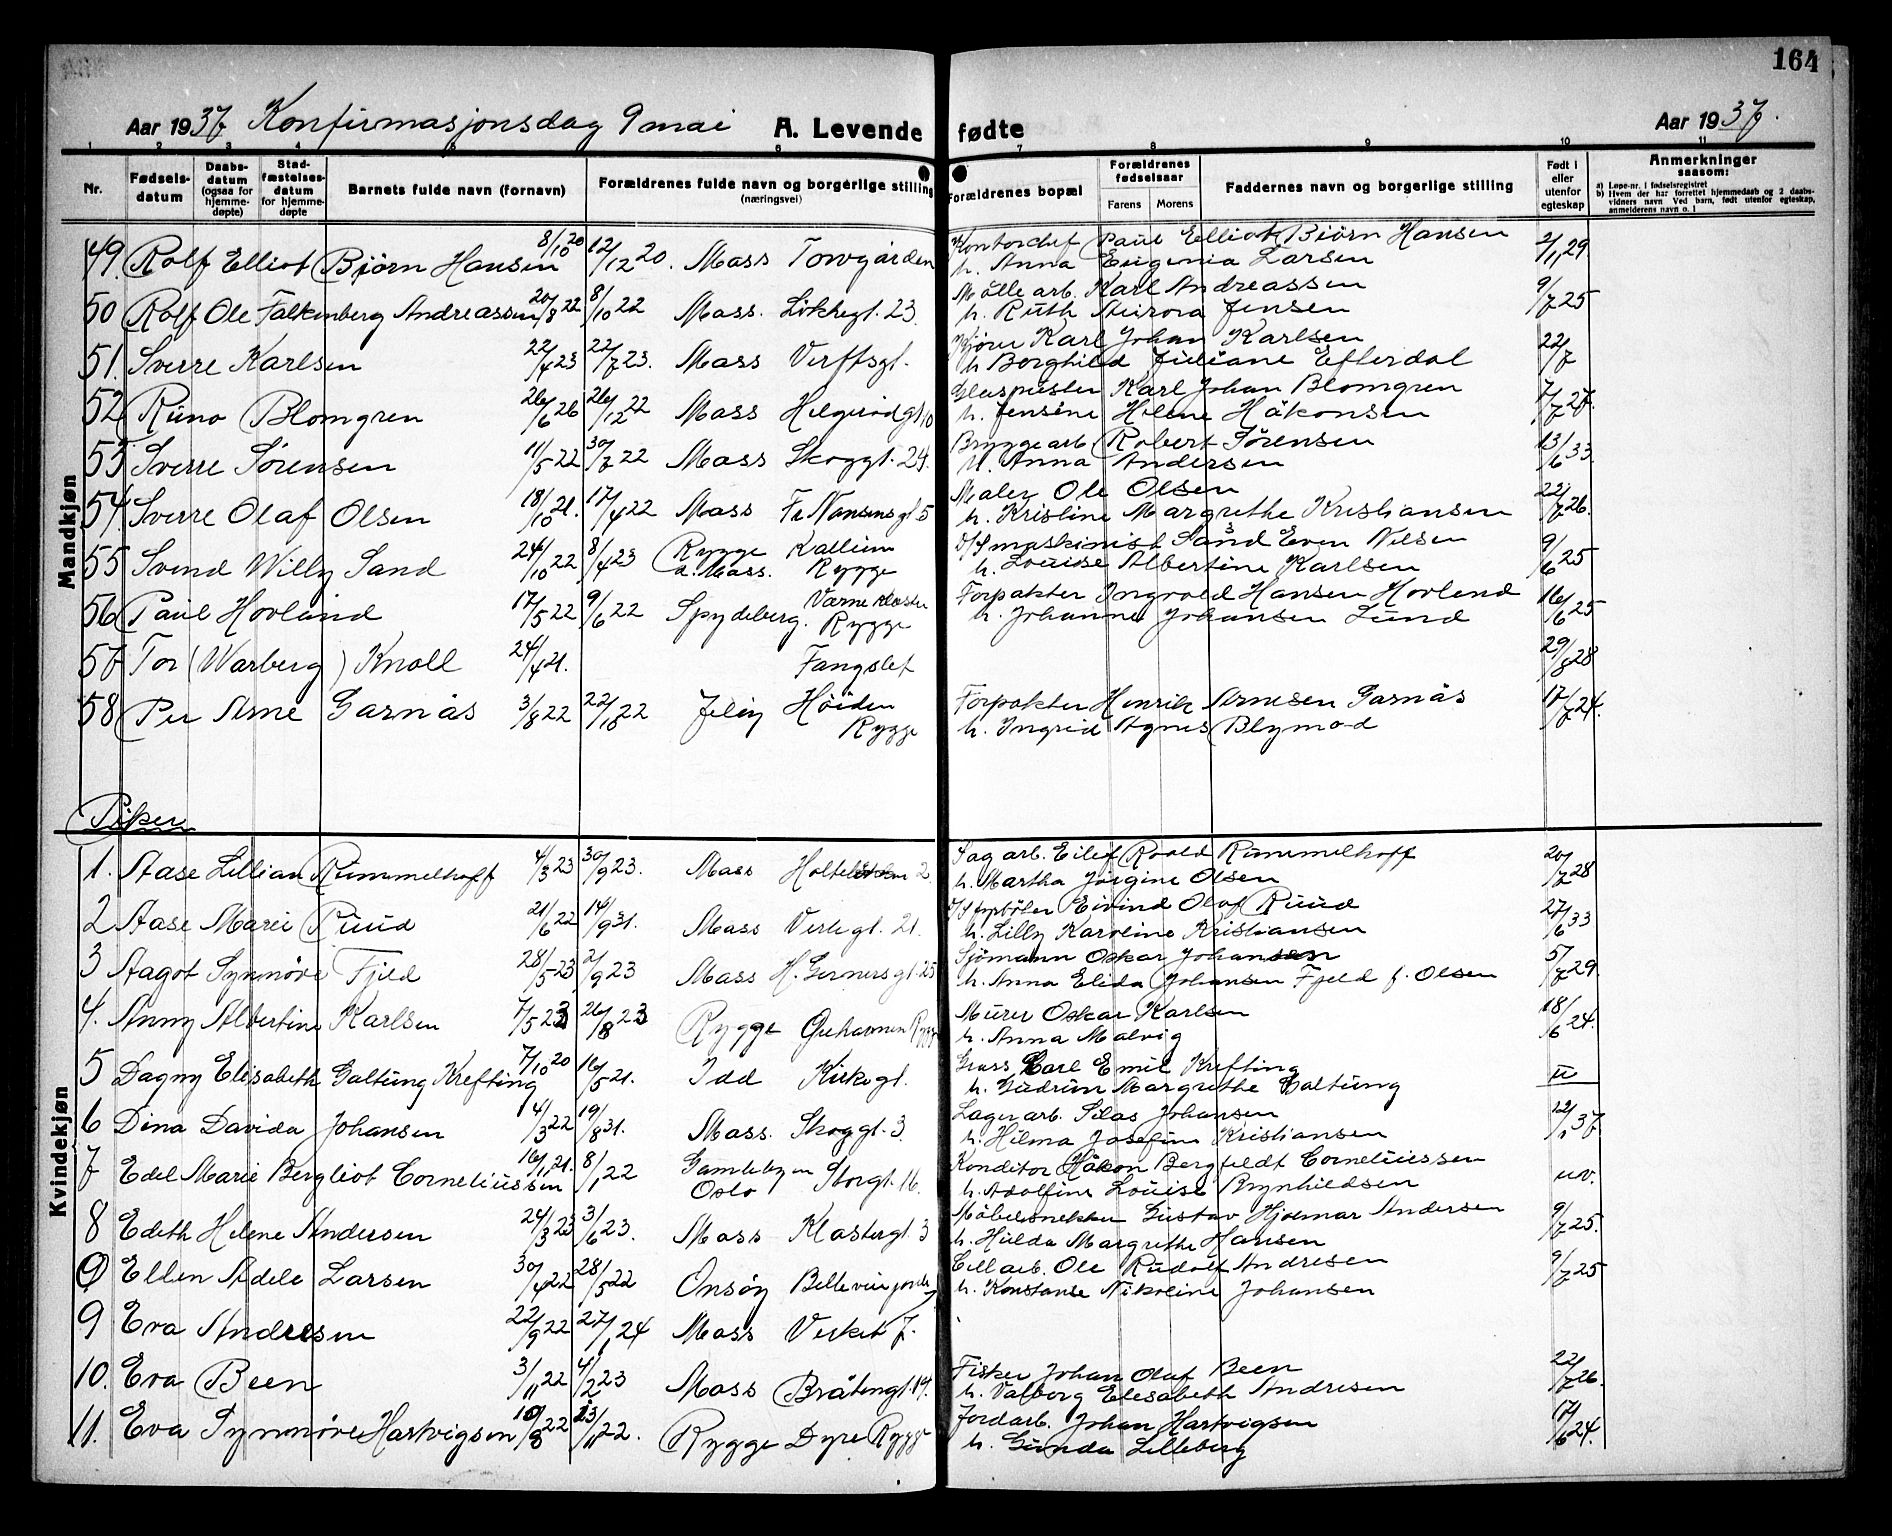 164
Aar 1937 Konfirmasjonsdag 9 mai A. Levende fødte Aar 1937.
1 2 3 4 5 6 7 8 9 10 11
Nr. Fødselsdatum Daabsdatum (ogsaa for hjemmedøpte) Stadfæstelsesdatum for hjemmedøpte Barnets fulde navn (fornavn) Forældrenes fulde navn og borgerlige stilling (næringsvei) Forældrenes bopæl Forældrenes fødselsaar Farens Morens Faddernes navn og borgerlige stilling Født i eller utenfor egteskap Anmerkninger saasom:
a) Løpe-nr. i fødselsregistret
b) Hvem der har forrettet hjemmedaab og 2 daabsvidners navn Ved barn, født utenfor egteskap, anmelderens navn o. l
Mandkjøn
49. Rolf Elliot Bjørn Hansen 8/10 20 12/12 20. Moss Torvgården Kontorchef Paul Elliot Bjørn Hansen 2/11 29
h. Anna Eugenia Larsen
50 Rolf Ole Falkenberg Andreassen 20/8 22 8/10 22 Moss. Løkkegt. 23 Mølle arb. Karl Andreassen 9/7 25
h. Ruth Aurora Jensen
51. Sverre Karlsen 22/4 23 22/7 23. Moss Verftsgt. Kjører Karl Johan Karlsen 22/7
h Borghild Juliane Efterdal
52 Runo Blomgren 26/6 26 26/12 22 Moss Helgerødgt 10 Glaspuster Karl Johan Blomgren 7/7 27.
h. Jensine Helene Håkonsen
53 Sverre Sørensen 11/5 22 30/7 22 Moss Skoggt. 24. Bryggearb Robert Sørensen 13/6 33
h. Anna Andersen
54 Sverre Olaf Olsen 18/10 21. 17/4 22 Moss Fr Nansens gt 5 Maler Ole Olsen 22/7 26.
h. Kristine Margrethe Kristiansen
55 Svend Willy Sand 24/10 22 8/4 23 Rygge Kallum D/S maskinist Sand Even Nilsen 9/6 25
a. Moss. Rygge h. Louise Albertine Karlsen
56 Paul Hovland 17/5 22 9/6 22 Spydeberg. Varne Kloster Rygge Forpakter Ingvald Hansen Hovland 16/6 25
h. Johanne Johansen Lund
57 Tor (Warberg) Knoll 24/4 21. Fangslet 29/8 28
58 Per Arne Garnås 3/8 22 22/10 22 Jeløy Høiden Forpakter Henrik Arnesen Garnås 17/7 24.
Rygge h. Ingrid Agnes Blymod
Piker
Kvindekjøn
1. Aase Lillian Rummelhoff 4/3 23 30/9 23. Moss 2. Sag arb. Eilef Roald Rummelhoff 20/7 28
h. Martha Jørgine Olsen
2 Aase Marie Ruud 21/6 22 14/9 31. Moss Verlegt. 21. D/S fyrbøter Eivind Olaf Ruud 27/6 33
h. Lilly Karoline Kristiansen
3 Aagot Synnøve Fjeld 28/5 23 2/9 23 Moss H. Gerners gt. 25 Sjømann Oskar Johansen 5/7 29.
h. Anna Elida Johansen Fjeld f. Olsen
4. Anny Albertine Karlsen 7/5 23 26/8 23 Rygge Guhavnen Rygge Murer Oskar Karlsen 18/6 24.
h. Anna Malvig
5 Dagny Elisabeth Galtung Krefting 7/10 20 16/5 21. Idd Kirkegt. Gross. Carl Emil Krefting u
h. Gudrun Margrethe Galtung
6 Dina Davida Johansen 14/3 22 19/8 31. Moss. Skoggt. 3. Lager arb. Silas Johansen 22/1 37.
h. Hilma Josefine Kristiansen
7 Edel Marie Bergliot Corneliussen 16/1 21. 8/1 22 Gamlebyen Storgt. 16. Konditor Håkon Bergfeldt Corneliussen uv.
Oslo h. Adolfine Louise Brynhildsen
8 Edith Helene Andersen 24/3 23 3/6 23. Moss Klostergt. 3 Møbelsnekker Gustav Hjalmar Andersen 9/7 25.
h. Hulda Margrethe Hansen
9 Ellen Adele Larsen 30/4 22 28/5 22 Onsøy Bellevue Cell arb. Ole Rudolf Andresen 9/7 25
h. Konstanse Nikoline Johansen
9 Eva Andresen 22/9 22 27/1 24 Moss Verket 7.
10. Eva Been 3/11 22 4/2 23 Moss Bråtengt. 14. Fisker Johan Olaf Been 22/7 26.
h. Valborg Elisabeth Andresen
11. Eva Synnøve Hartvigsen 10/8 22 23/11 22. Rygge Dyre Rygge Jordarb. Johan Hartvigsen 17/6 24.
h. Gunda Lilleberg